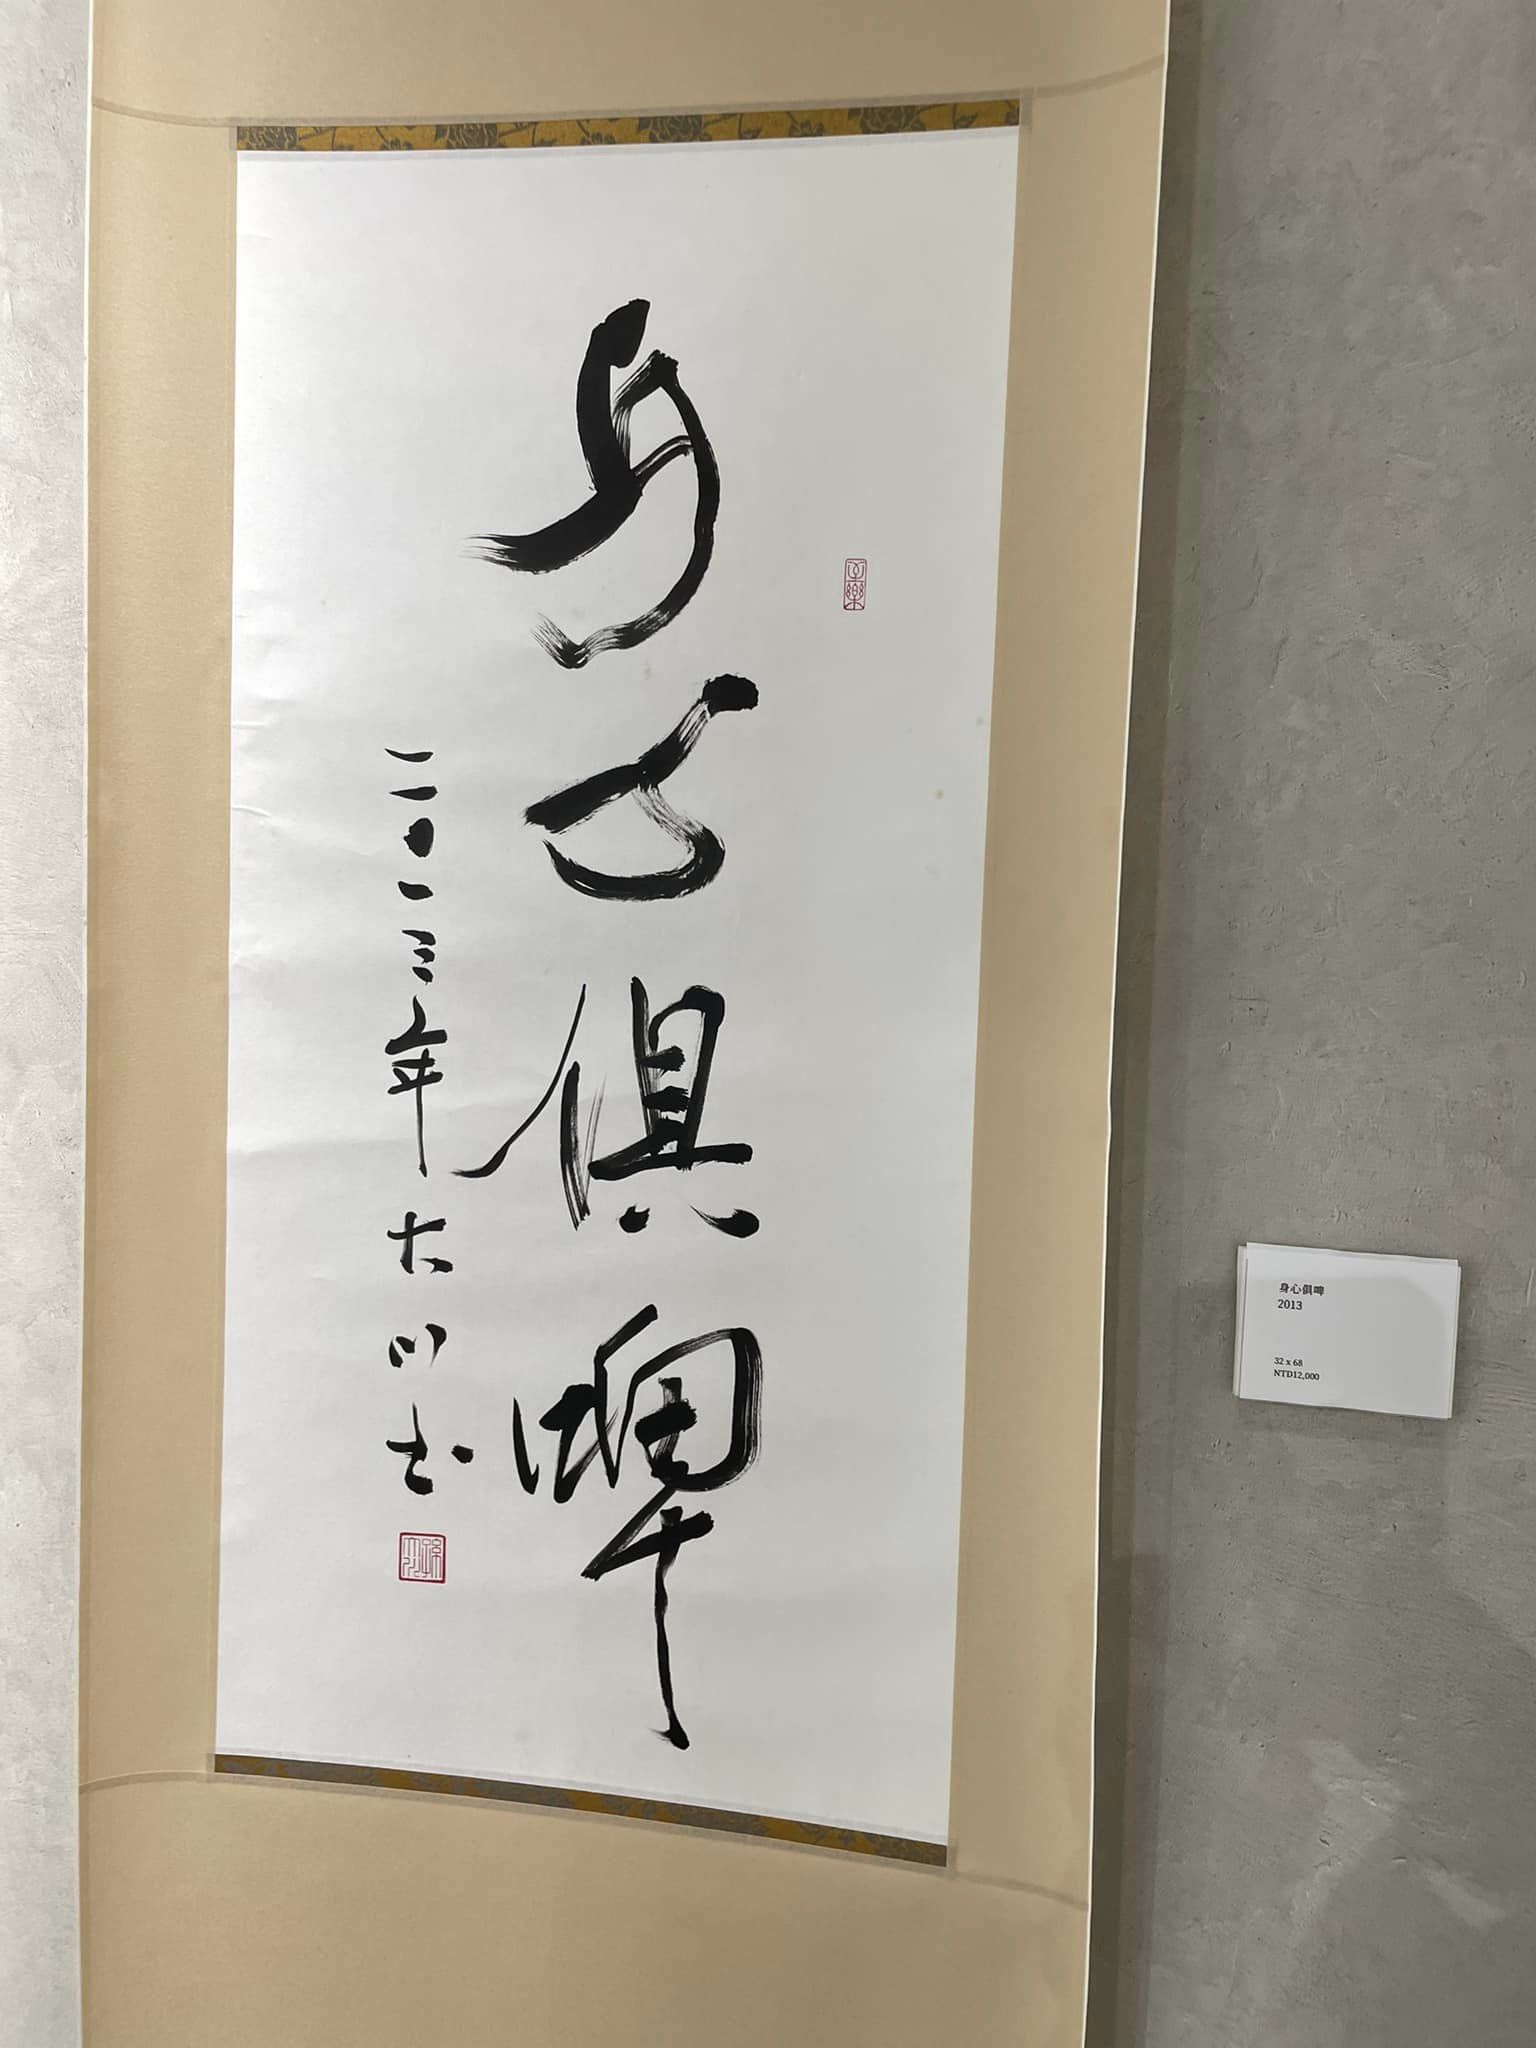 身心俱啤
二〇一三年大川书
身心俱啤
2013
32 x 68
NTD12,000